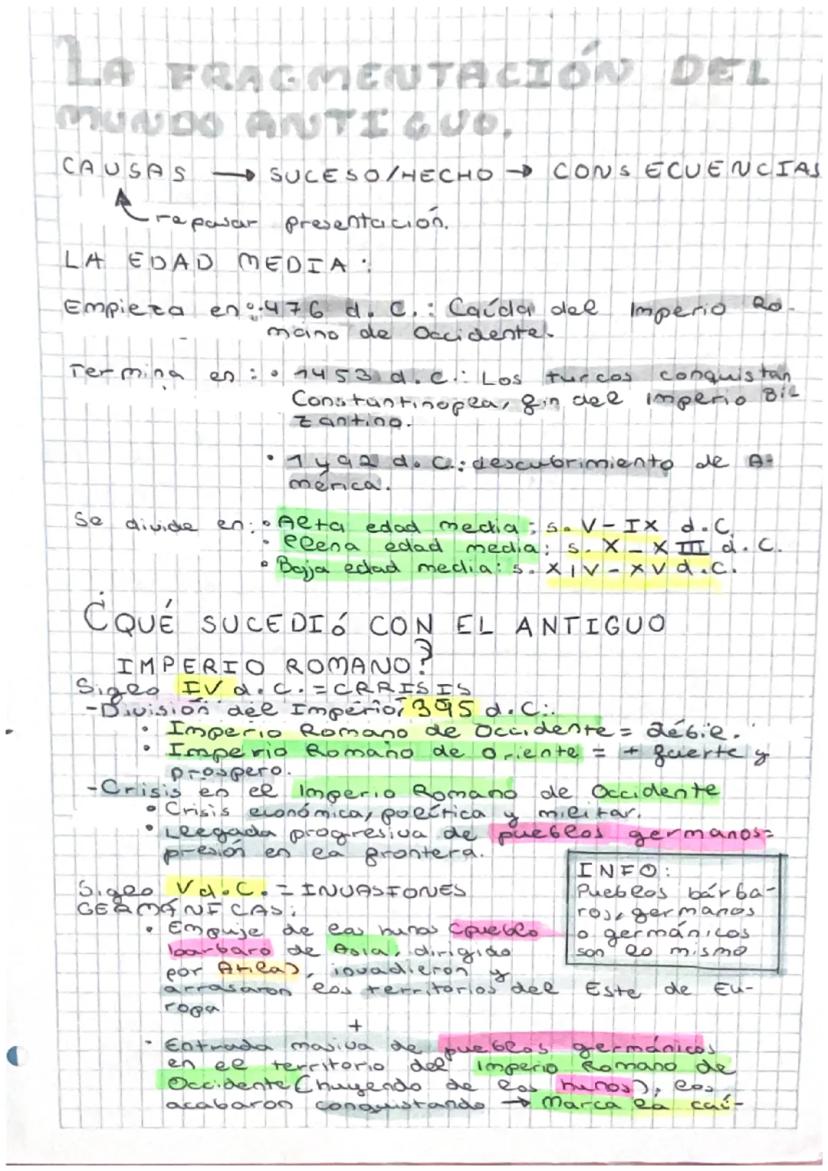 LA FRAGMENTACIÓN DEL
MUNDO ANTIGUO.
CAUSAS → SUCESO/HECHO → CONSECUENCIAS
repasar presentación.
LA EDAD MEDIA:
Empieza en: • 476 d. C.: Caída del Imperio Ro-
mano de Occidente.
Termina en: • 1453 d.C.: Los turcos conquistan
Constantinopla, fin del imperio Bi
zantino.
• 1492 d.C.: descubrimiento de A-
mérica.
Se divide en: • Alta edad media: s. V-IX d.C.
• Plena edad media: s. X-XIII d.C.
• Baja edad media: s. XIV-XV d.C.
¿QUÉ SUCEDIÓ CON EL ANTIGUO
IMPERIO ROMANO?
Siglo IV d.C. = CRRISIS
-División del Imperio, 395 d.C.:
• Imperio Romano de Occidente = débil.
• Imperio Romano de Oriente = + fuerte y
prospero.
-Crisis en el Imperio Romano de Occidente
• Crisis económica, política y militar.
• Llegada progresiva de pueblos germanos=
presión en la frontera.
Siglo V d.C. = INVASIONES
GERMÁNICAS:
• Empuje de los hunos (pueblo
barbaro de Asia, dirigido
por Atila), invadieron y
arrasaron los territorios del Este de Eu-
ropa
INFO:
Pueblos bárba-
ros, germanos
o germánicos
son lo mismo
+
• Entrada masiva de pueblos germánicos
en el territorio del Imperio Romano de
Occidente (huyendo de los hunos), los
acabaron conquistando → Marca la caí-